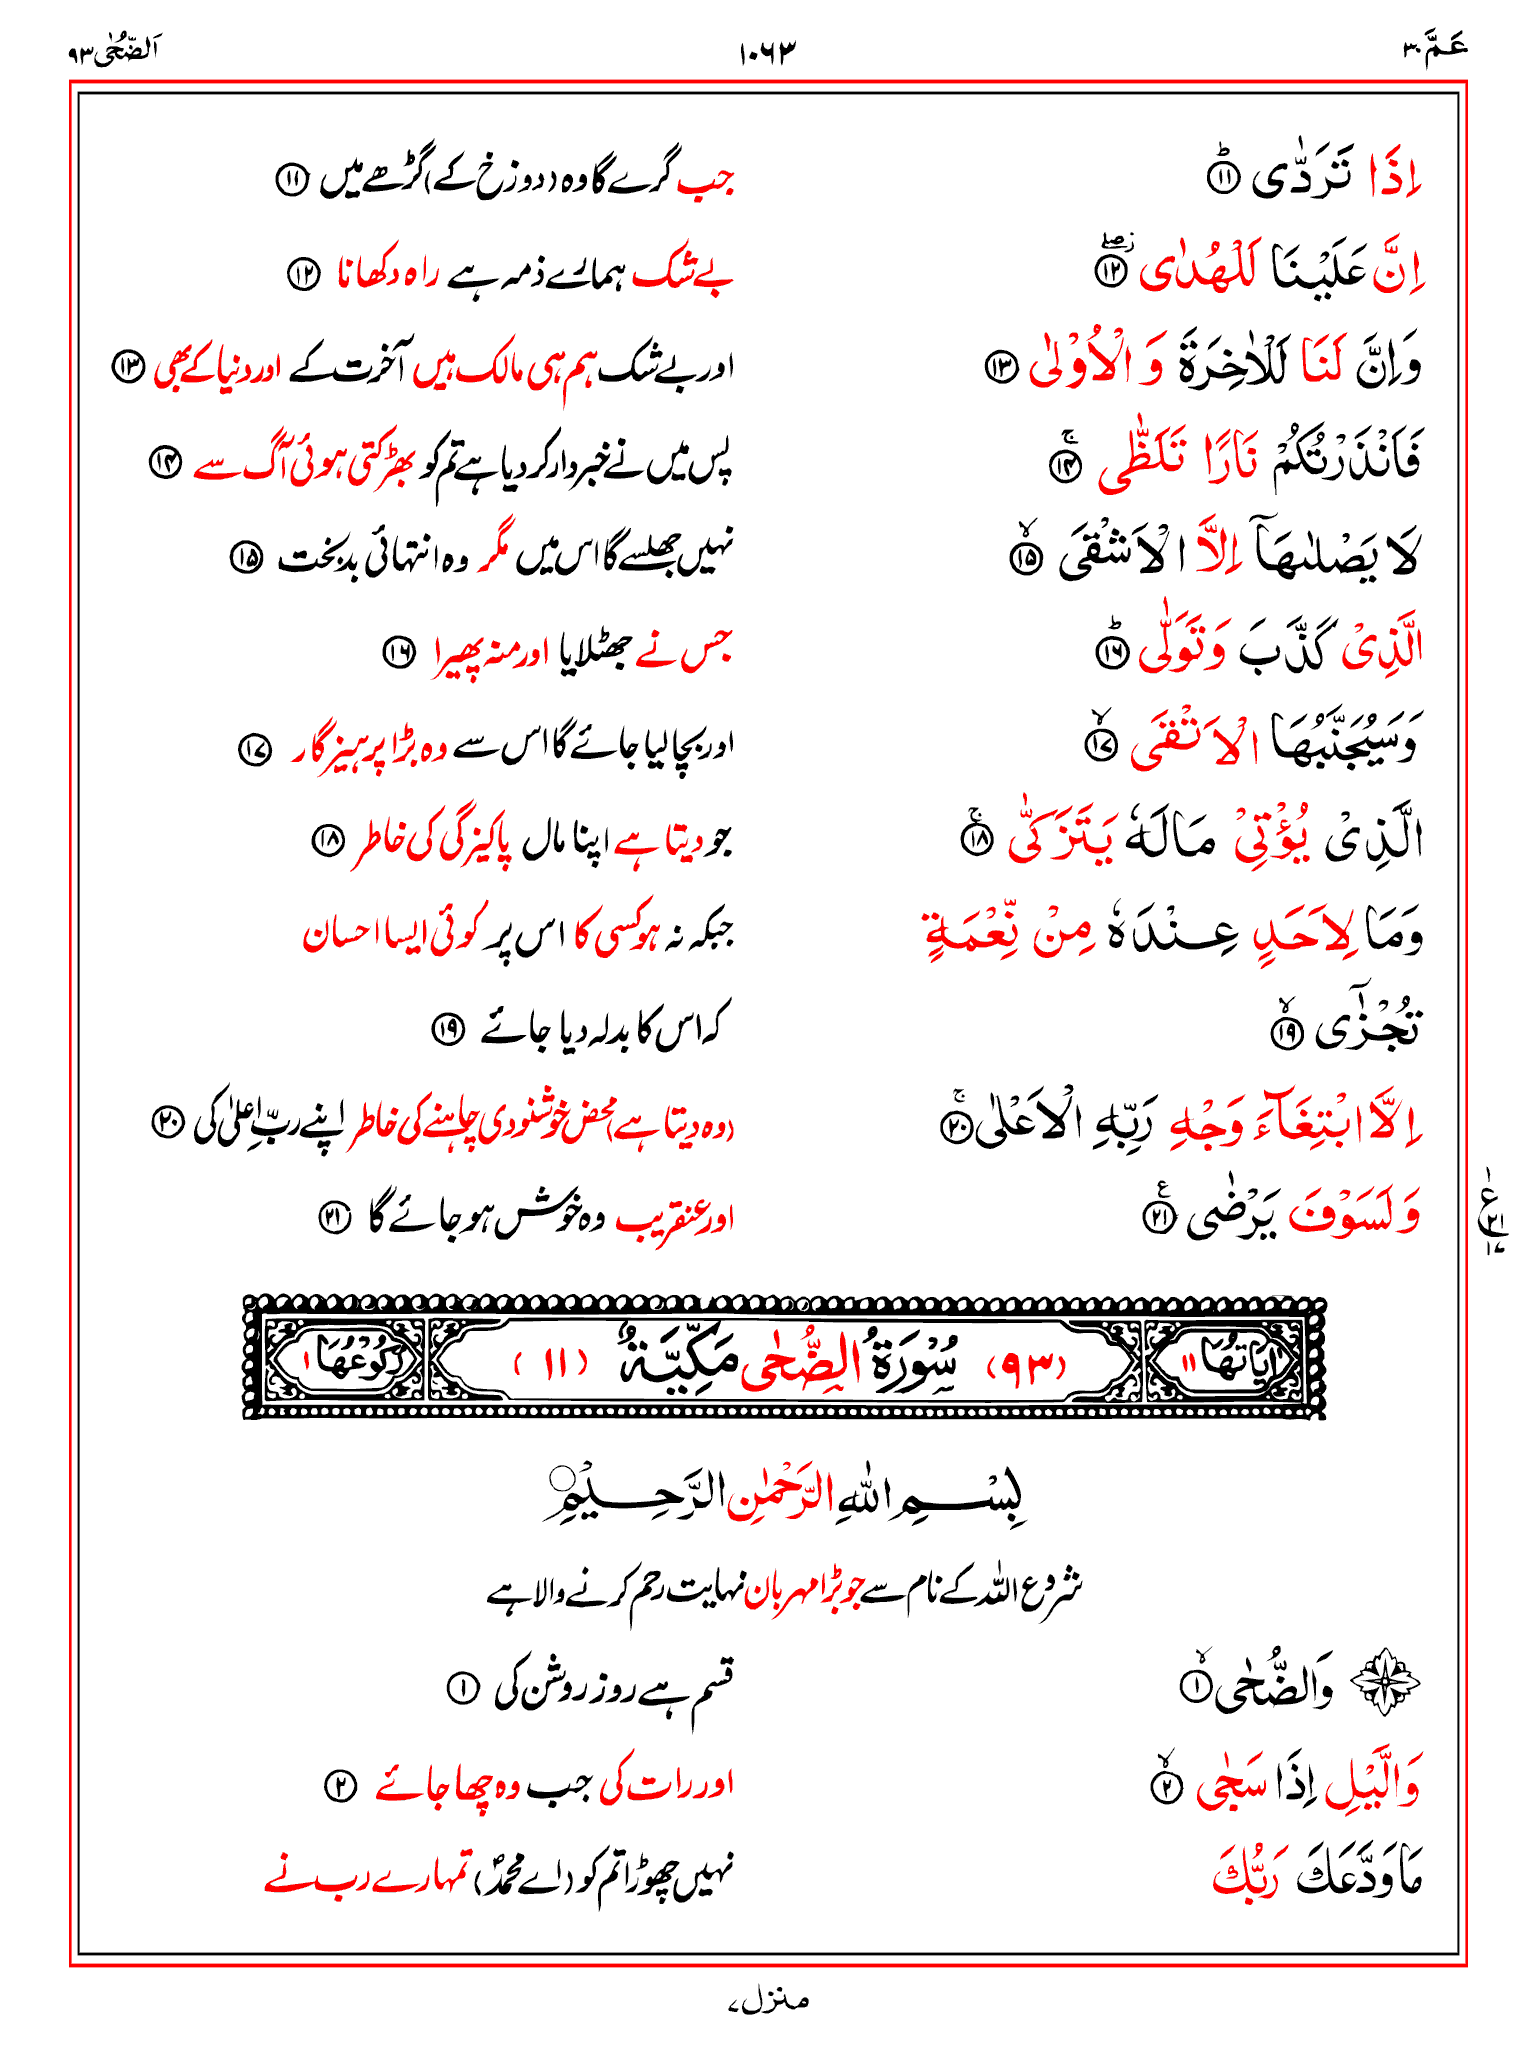 عَمَّ ۳۰ ۱۰۶۳ اَلضُّحٰی ۹۳
اِذَا تَرَدّٰی ؕ ۱۱ جب گرے گا وہ (دوزخ کے) گڑھے میں ۱۱
اِنَّ عَلَیْنَا لَلْهُدٰی ۱۲ بے شک ہمارے ذمہ ہے راہ دکھانا ۱۲
وَاِنَّ لَنَا لَلْاٰخِرَةَ وَ الْاُوْلٰی ۱۳ اور بے شک ہم ہی مالک ہیں آخرت کے اور دنیا کے بھی ۱۳
فَاَنْذَرْتُكُمْ نَارًا تَلَظّٰی ۚ ۱۴ پس میں نے خبردار کر دیا ہے تم کو بھڑکتی ہوئی آگ سے ۱۴
لَا یَصْلٰىهَاۤ اِلَّا الْاَشْقَی ۙ ۱۵ نہیں جھلسے گا اس میں مگر وہ انتہائی بد بخت ۱۵
الَّذِیْ كَذَّبَ وَتَوَلّٰی ؕ ۱۶ جس نے جھٹلایا اور منہ پھیرا ۱۶
وَسَیُجَنَّبُهَا الْاَتْقَی ۙ ۱۷ اور بچا لیا جائے گا اس سے وہ بڑا پرہیزگار ۱۷
الَّذِیْ یُؤْتِیْ مَالَهٗ یَتَزَكّٰی ۚ ۱۸ جو دیتا ہے اپنا مال پاکیزگی کی خاطر ۱۸
وَمَا لِاَحَدٍ عِنْدَهٗ مِنْ نِّعْمَةٍ جبکہ نہ ہو کسی کا اس پر کوئی ایسا احسان
تُجْزٰۤی ۙ ۱۹ کہ اس کا بدلہ دیا جائے ۱۹
اِلَّا ابْتِغَآءَ وَجْهِ رَبِّهِ الْاَعْلٰی ۚ ۲۰ (وہ دیتا ہے) محض خوشنودی چاہنے کی خاطر اپنے ربِّ اعلیٰ کی ۲۰
وَلَسَوْفَ یَرْضٰی ۲۱ اور عنقریب وہ خوش ہو جائے گا ۲۱
ع ۲۱ ۱۷
اٰیَاتُهَا ۱۱ (۹۳) سُوْرَةُ الضُّحٰی مَكِّیَّةٌ (۱۱) رُكُوْعُهَا ۱
بِسْمِ اللّٰهِ الرَّحْمٰنِ الرَّحِیْمِ
شروع اللہ کے نام سے جو بڑا مہربان نہایت رحم کرنے والا ہے
وَالضُّحٰی ۙ ۱ قسم ہے روز روشن کی ۱
وَالَّیْلِ اِذَا سَجٰی ۙ ۲ اور رات کی جب وہ چھا جائے ۲
مَا وَدَّعَكَ رَبُّكَ نہیں چھوڑا تم کو (اے محمدؐ) تمہارے رب نے
منزل ۷